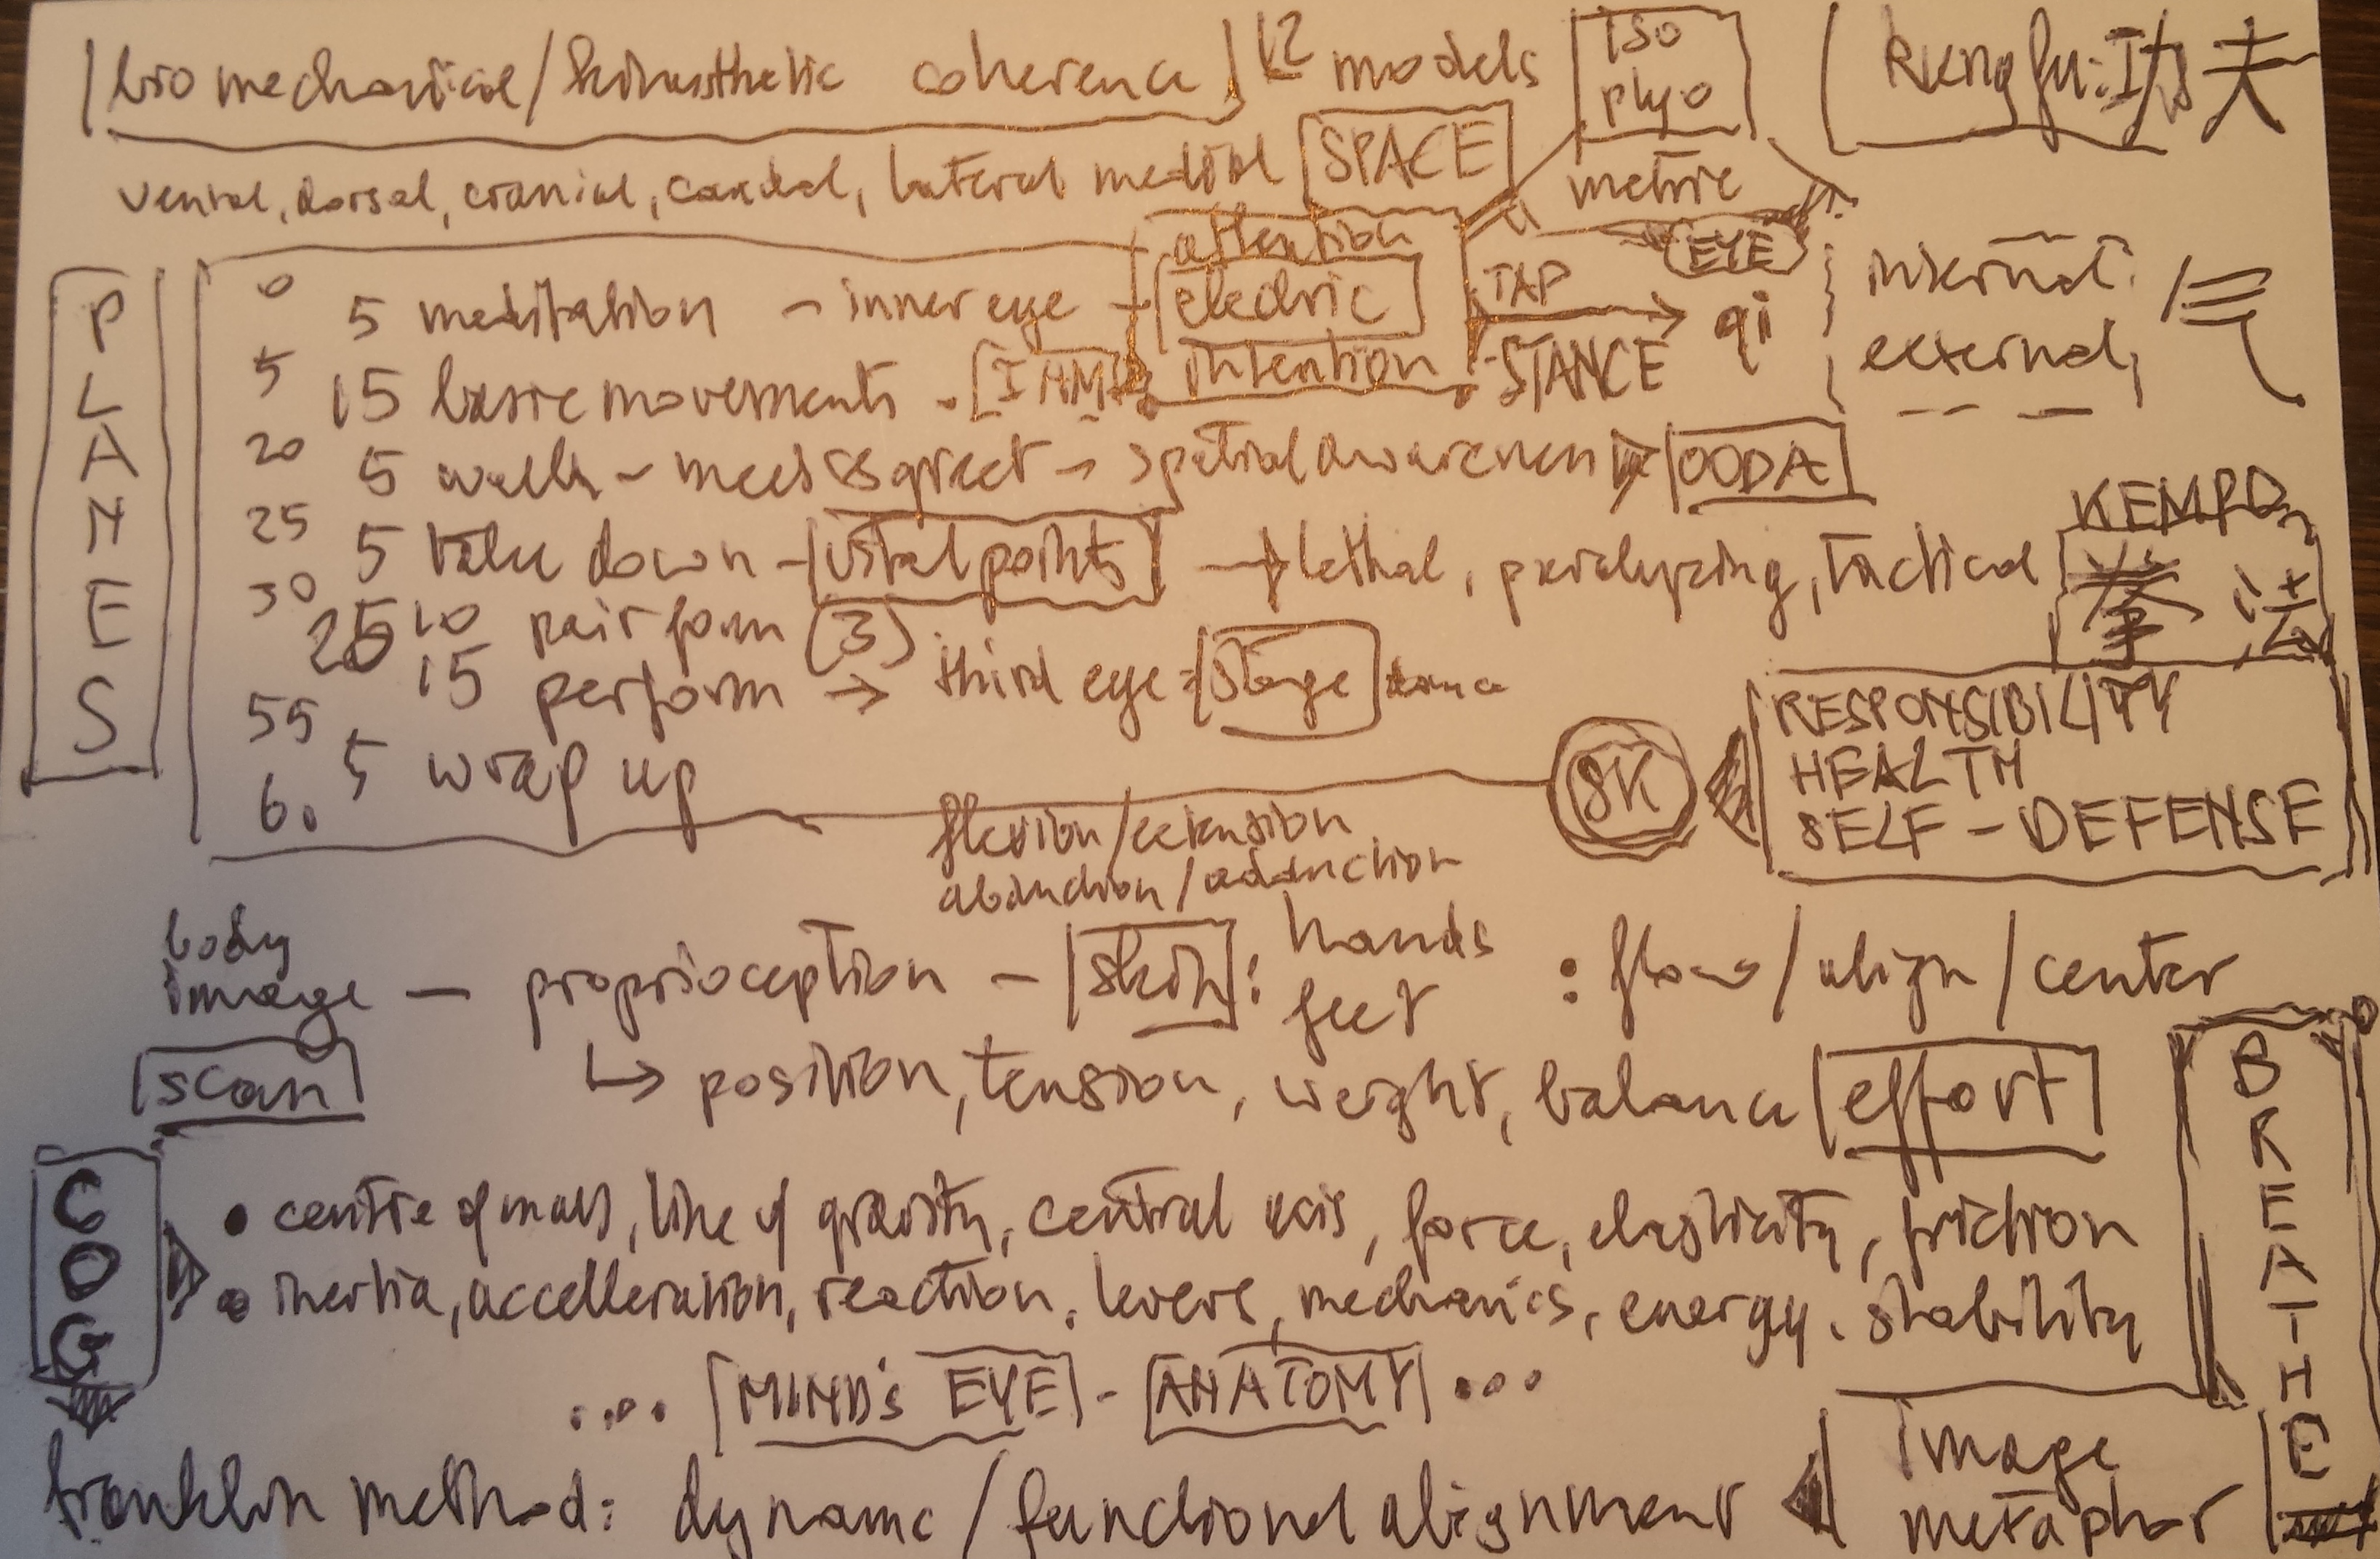 biomechanical/kinaesthetic coherence models
iso
plyo
metric
Kung fu: 功夫
ventral, dorsal, cranial, caudal, lateral medial SPACE
PLANES
attention
0
5 meditation - inner eye - electric TAP → qi
EYE
internal:
external:
气
5
15 basic movements - I AM intention STANCE
20
5 walk - meet & greet - spatial awareness OODA
25
5 take down - vital points → lethal, paralyzing, tactical
KEMPO
拳法
30
25 10 pair form (3)
15 perform → third eye stage
55
5 wrap up
60
8K
RESPONSIBILITY
HEALTH
SELF-DEFENSE
flexion/extension
abduction/adduction
body
image - proprioception - skin: hands
feet
: flow/align/center
scan
↳ position, tension, weight, balance effort
BREATHE
COG
• centre of mass, line of gravity, central axis, force, elasticity, friction
• inertia, accelleration, reaction, levers, mechanics, energy, stability
.... MIND's EYE - ANATOMY ...
franklin method: dynamic/functional alignment
image
metaphor